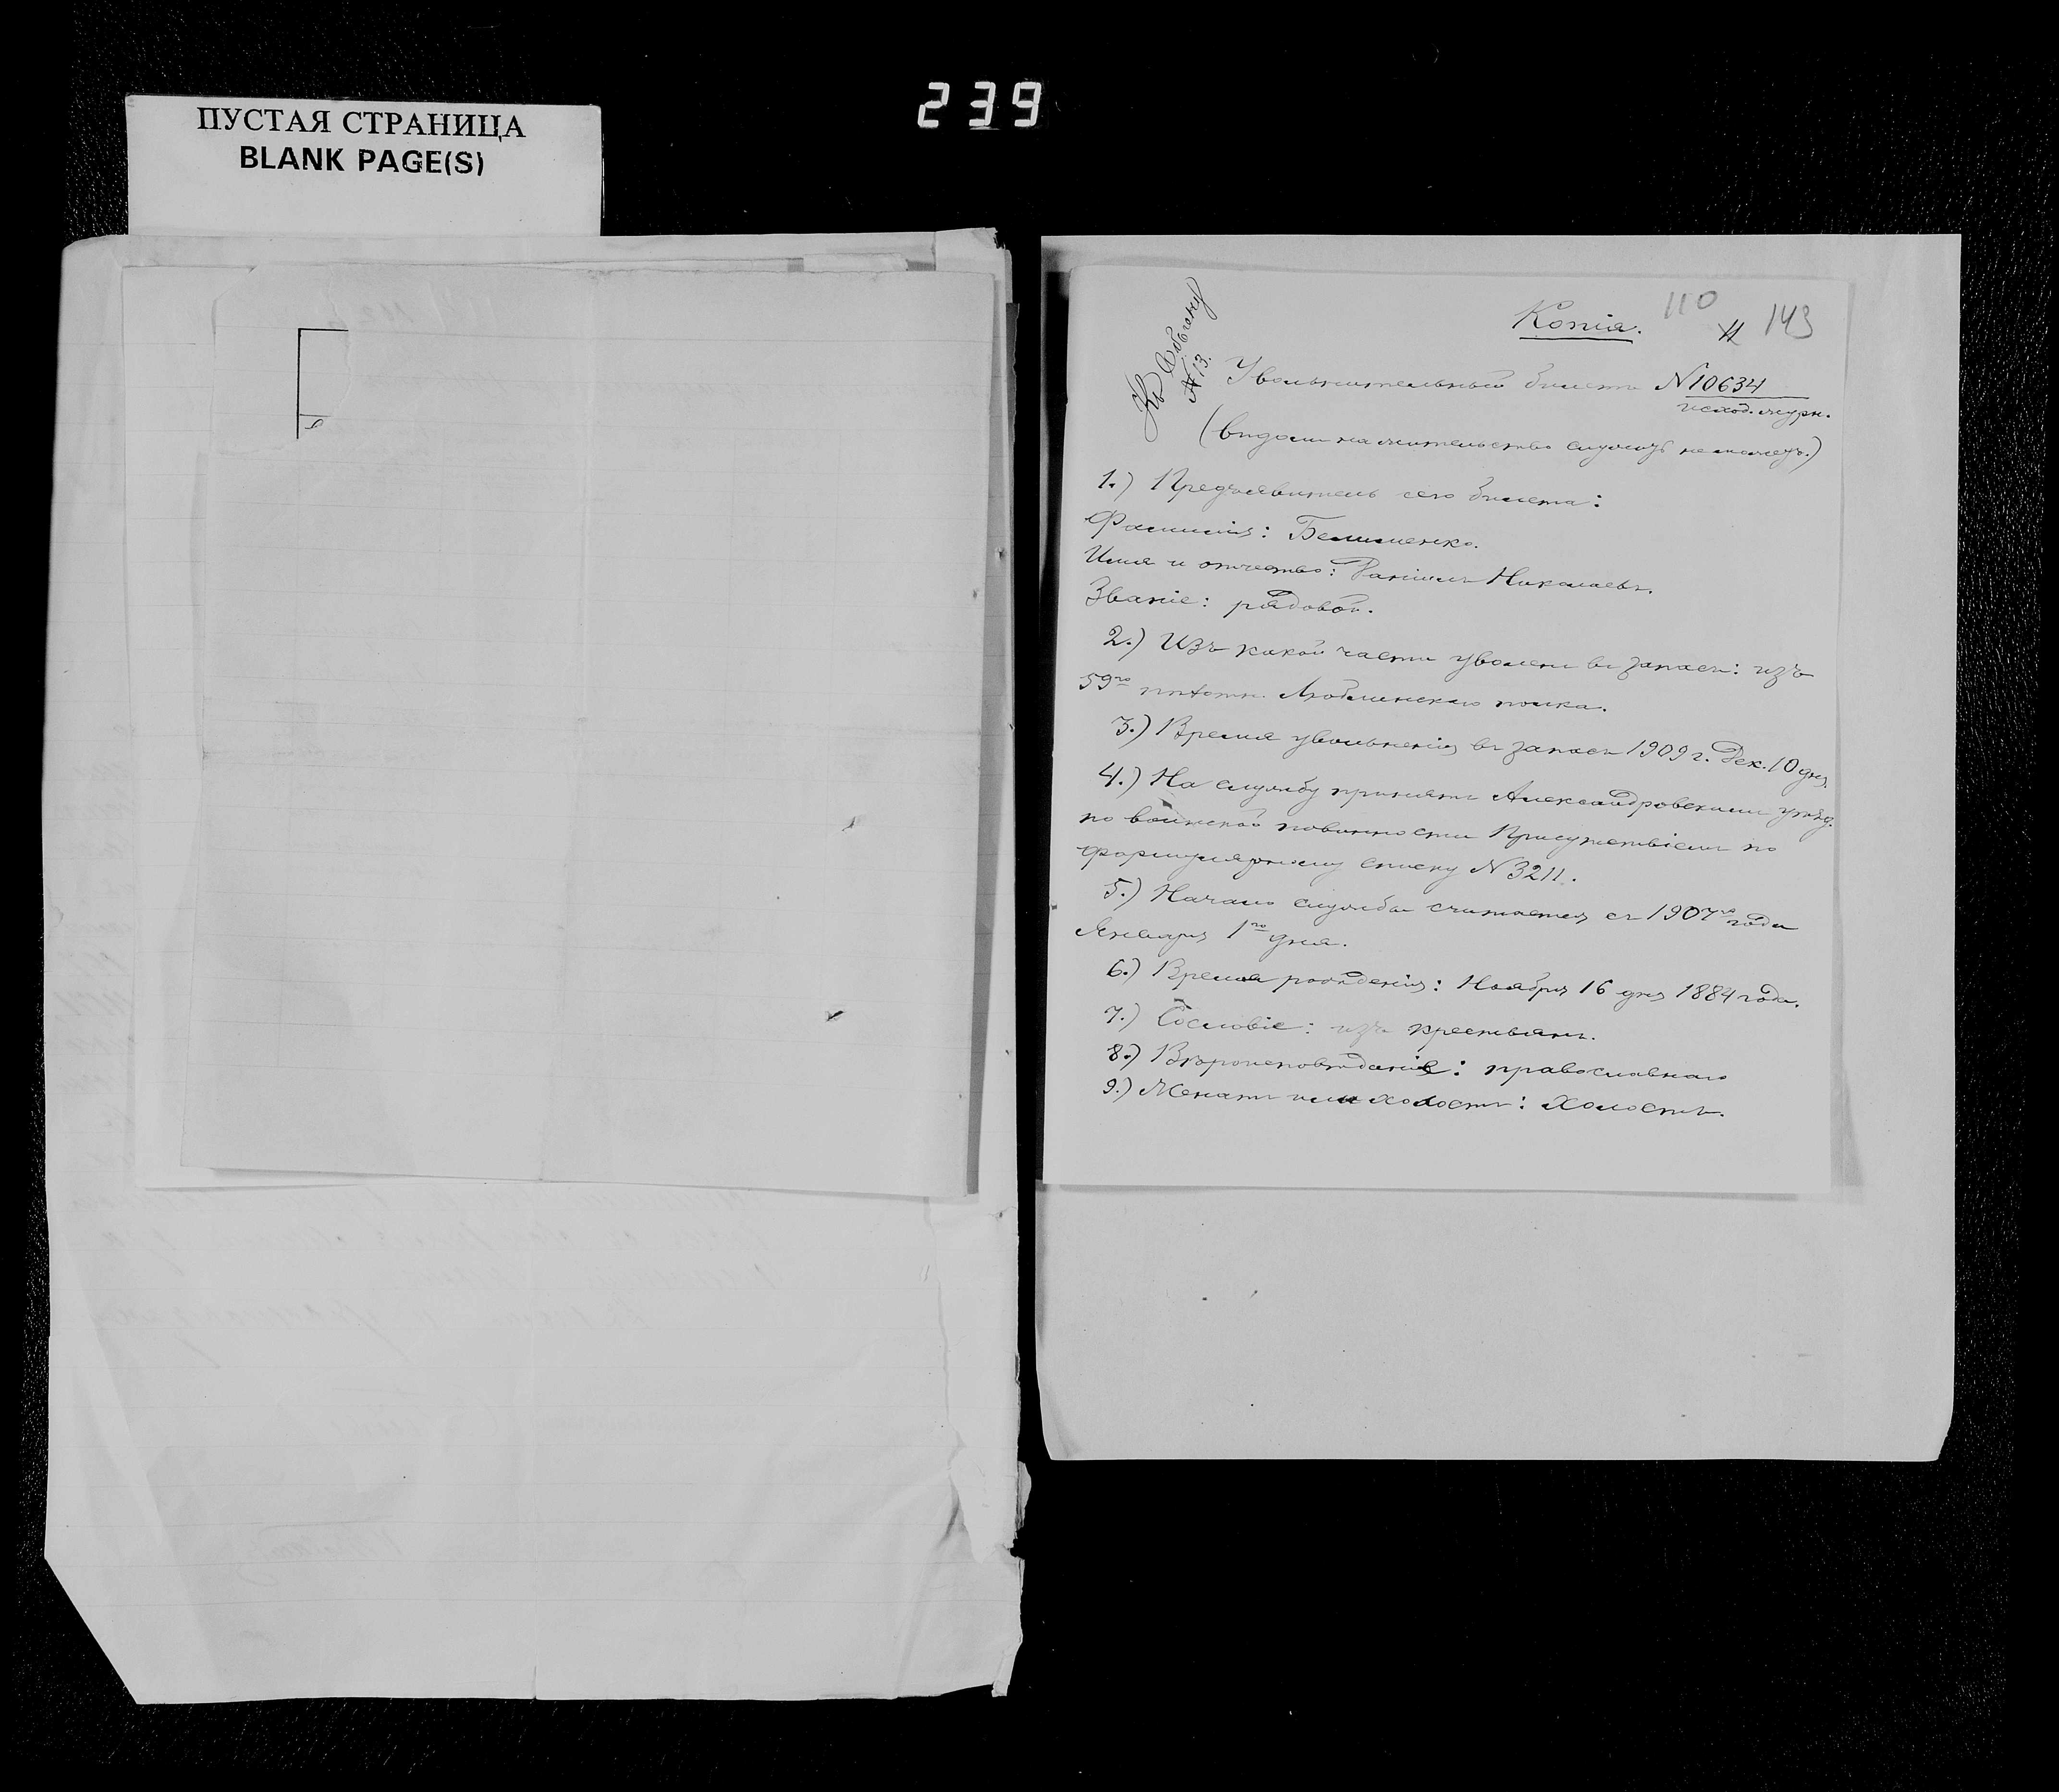 239
ПУСТАЯ СТРАНИЦА
BLANK PAGE(S)
110
143
Копія.
Къ
№ 13.
Увольнительный билетъ №10634
исход. журн.
(видомъ на жительство служить не можетъ.)
1.) Предъявитель сего билета:
Фамилія: Белименко.
Имя и отчество: Даніилъ Николаевъ.
Званіе: рядовой.
2.) Изъ какой части уволенъ въ запасъ: изъ
59го пѣхотн. Люблинскаго полка.
3.) Время увольненія въ запасъ 1909 г. Дек. 10 дня.
4.) На службу принятъ Александровскимъ уѣзд.
по воинской повинности Присутствіемъ по
формулярному списку №3211.
5.) Начало службы считается съ 1907го года
Января 1го дня.
6.) Время рожденія: Ноября 16 дня 1884 года.
7.) Сословіе: изъ крестьянъ.
8.) Вѣроисповѣданіе: православнаго
9.) Женатъ или холостъ: Холостъ.